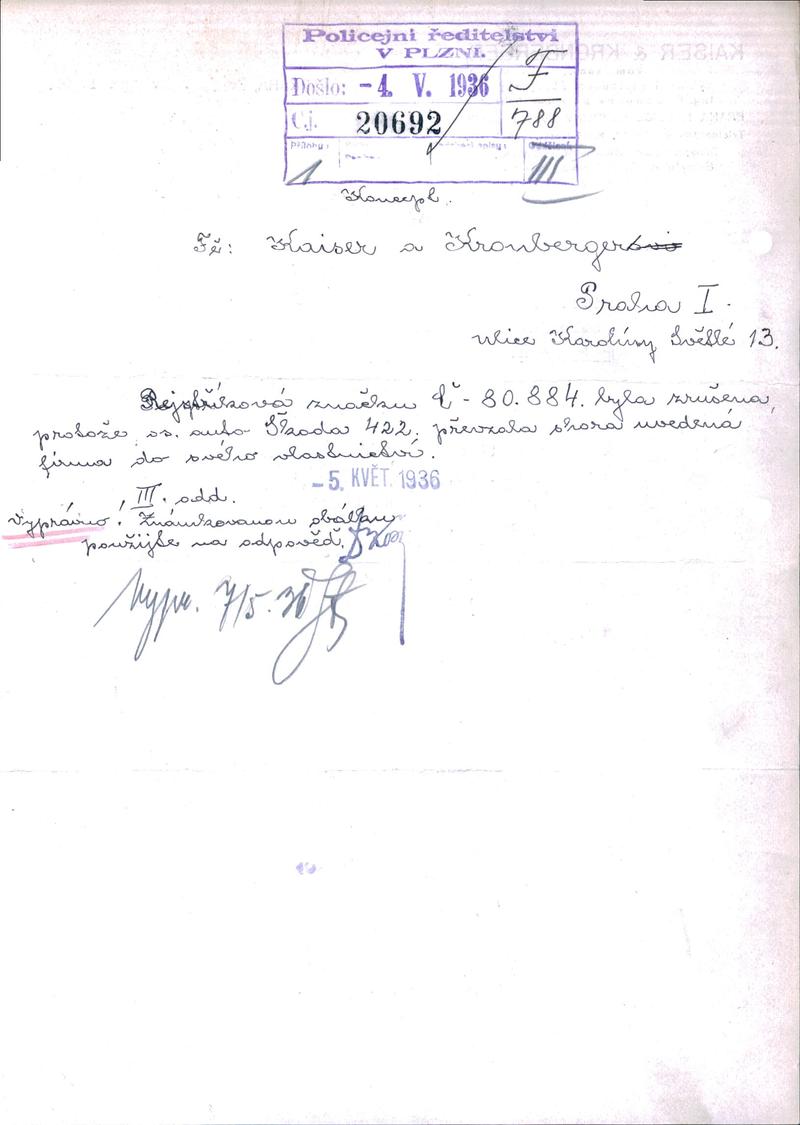 Policejní ředitelství
V PLZNI.
Došlo: -4. V. 1936
F
788
Čj. 20692
Přílohy:
1
III
Koncept.
Fě: Kaiser a Kronberger
Praha I.
ulice Karolíny Světlé 13.
Rejstříková značka Č-80.884. byla zrušena,
protože os. auto Škoda 422. převzala shora uvedená
firma do svého vlastnictví.
-5. KVĚT. 1936
III. odd.
Výpravno! Známkovanou obálku
použijte na odpověď.
Vypr. 7/5. 36